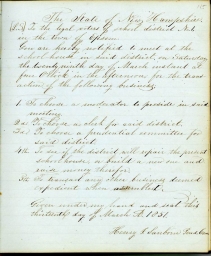 The State of New Hampshire
(L.S.) To the legal voters of school district No 1
in the town of Epsom
You are hereby notified to meet at the
school house in said district, on Saturday
the twenty ninth day of March instant at
four Oclock in the afternoon for the trans
action of the following business
1. To choose a moderator to preside in said
meeting.
2d To choose a clerk for said district.
3d To choose a prudential committee for
said district.
4th To see if the district will repair the present
school house, or build a new one and
raise money therefor.
5th To transact any other business deemed
expedient when assembled.
Given under my hand and seal this
thirteenth day of March A.D. 1851.
Henry Sanborn